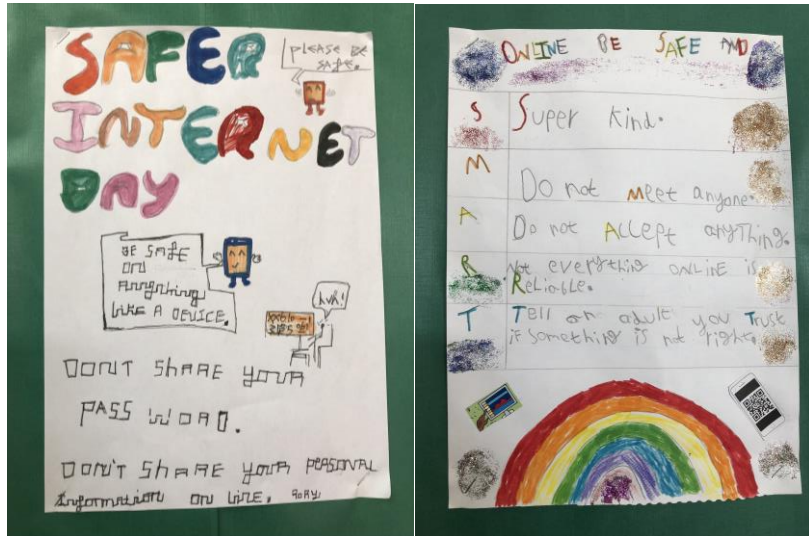 SAFER
PLEASE BE
SAFE.
INTERNET
DAY
BE SAFE
ON
ANYTHING
LIKE A DEVICE.
AVA!
DON'T SHARE YOUR
PASS WORD.
DON'T SHARE YOUR PERSONAL
information ON LINE. RORY
ONLINE BE SAFE AND
S Super Kind.
M Do not Meet anyone.
A Do not Accept anything.
R Not everything ONLINE is
Reliable.
T Tell an adult you Trust
if something is not right.